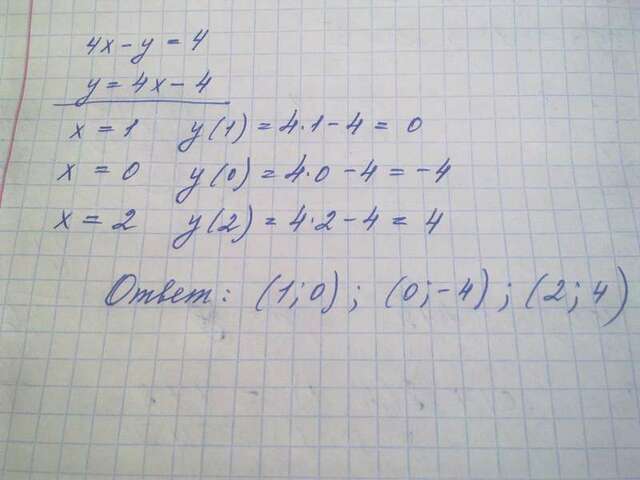 4x - y = 4
y = 4x - 4
x = 1 y(1) = 4·1 - 4 = 0
x = 0 y(0) = 4·0 - 4 = -4
x = 2 y(2) = 4·2 - 4 = 4
Ответ: (1;0); (0;-4); (2;4)